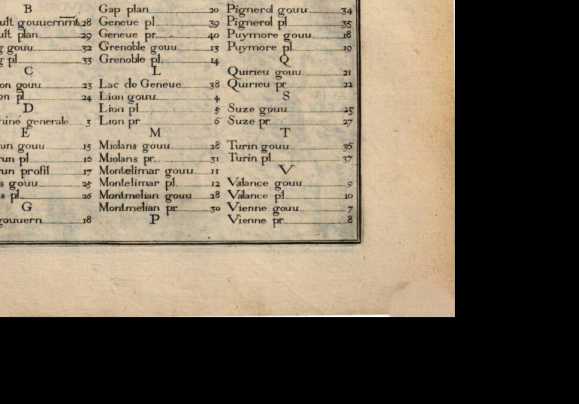 B
ult gouuernmt 28
ult plan 29
g gouu 32
g pl 33
C
on gouu 23
on pl 24
D
hine generale 3
E
un gouu 15
run pl 16
run profil 17
s gouu 25
s pl 26
G
gouuern 18
Gap plan 20
Geneue pl 39
Geneue pr 40
Grenoble gouu 13
Grenoble pl 14
L
Lac de Geneue 38
Lion gouu 4
Lion pl 5
Lion pr 6
M
Miolans gouu 28
Miolans pr 31
Montelimar gouu 11
Montelimar pl 12
Montmelian gouu 28
Montmelian pr 30
P
Pignerol gouu 34
Pignerol pl 35
Puymore gouu 18
Puymore pl 19
Q
Quirieu gouu 21
Quirieu pr 22
S
Suze gouu 25
Suze pr 27
T
Turin gouu 36
Turin pl 37
V
Valance gouu 9
Valance pl 10
Vienne gouu 7
Vienne pr 8